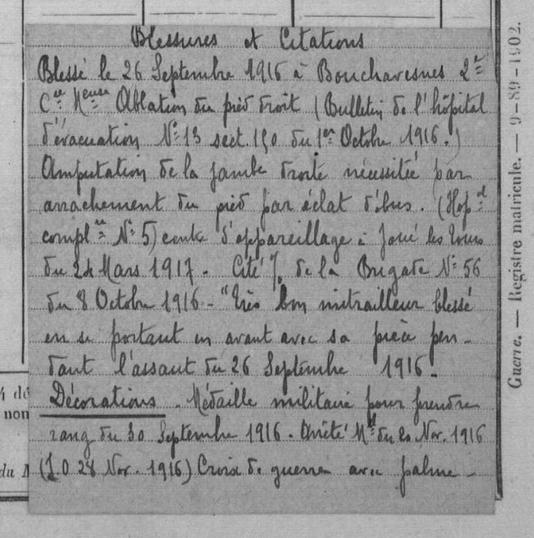 Blessures et Citations
Blessé le 26 Septembre 1916 à Bouchavesnes 2e
Cie Meuse Ablation du pied droit (Bulletin de l'hôpital
d'évacuation No 13 sect. 150 du 1er Octobre 1916.)
Amputation de la jambe droite nécessitée par
arrachement du pied par éclat d'obus. (Hopal
complre No 5) centre d'appareillage à Joué les Tours
du 24 Mars 1917 - Cité de la Brigade No 56
du 8 Octobre 1916 - "Très bon mitrailleur blessé
en se portant en avant avec sa pièce pen-
dant l'assaut du 26 Septembre 1916.
Décorations - Médaille militaire pour prendre
rang du 30 Septembre 1916. Arrêté Mel du 20 Nov. 1916
(J.O 28 Nov. 1916) Croix de guerre avec palme -
Guerre. — Registre matricule. — 9-89-1902.
non
du